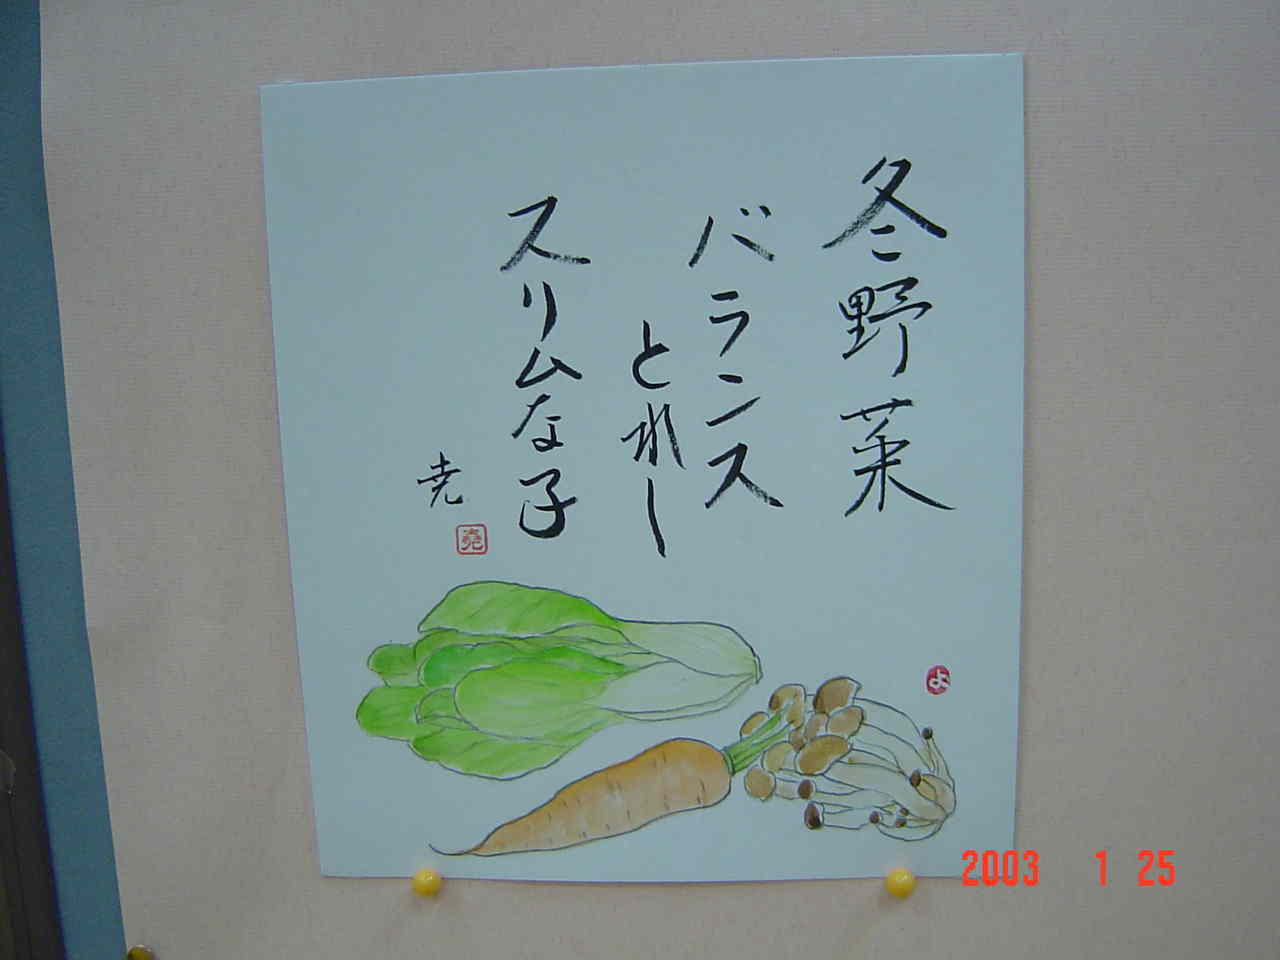 冬野菜
バランス
とれし
スリムな子
尭
堯
よ
2003 1 25